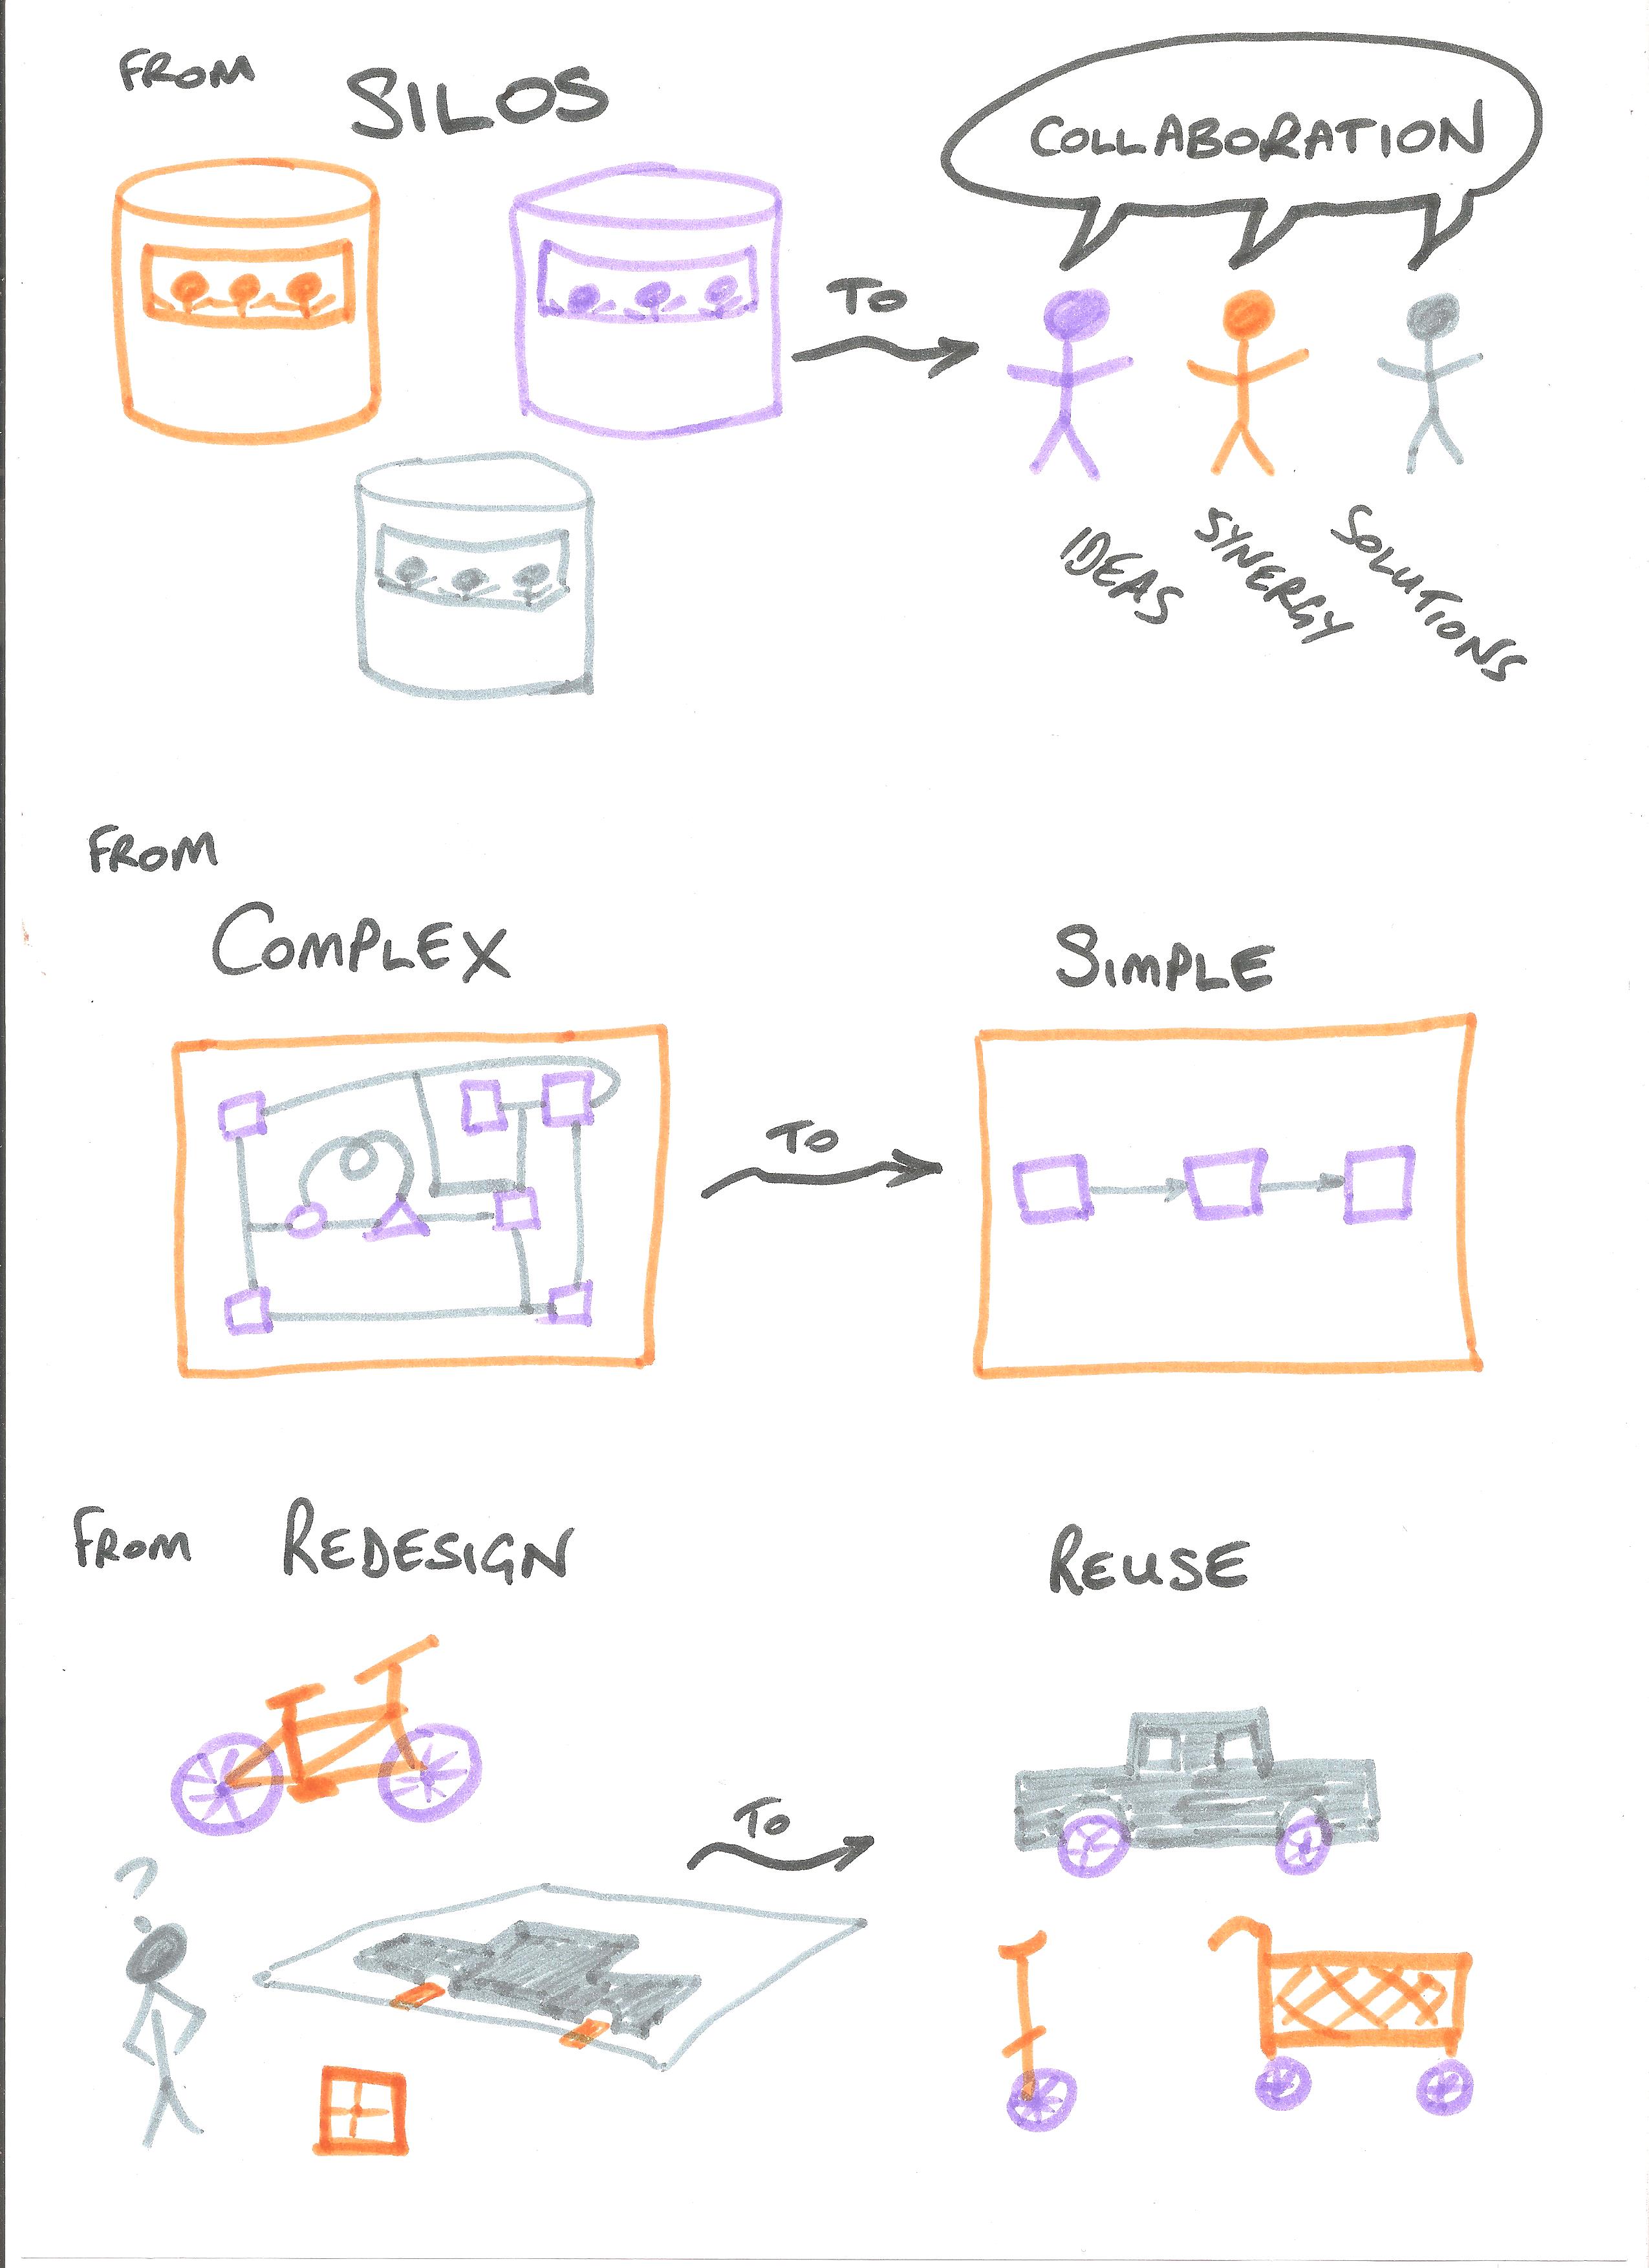 FROM SILOS
COLLABORATION
TO
IDEAS
SYNERGY
SOLUTIONS
FROM
COMPLEX
SIMPLE
TO
FROM REDESIGN
REUSE
TO
?